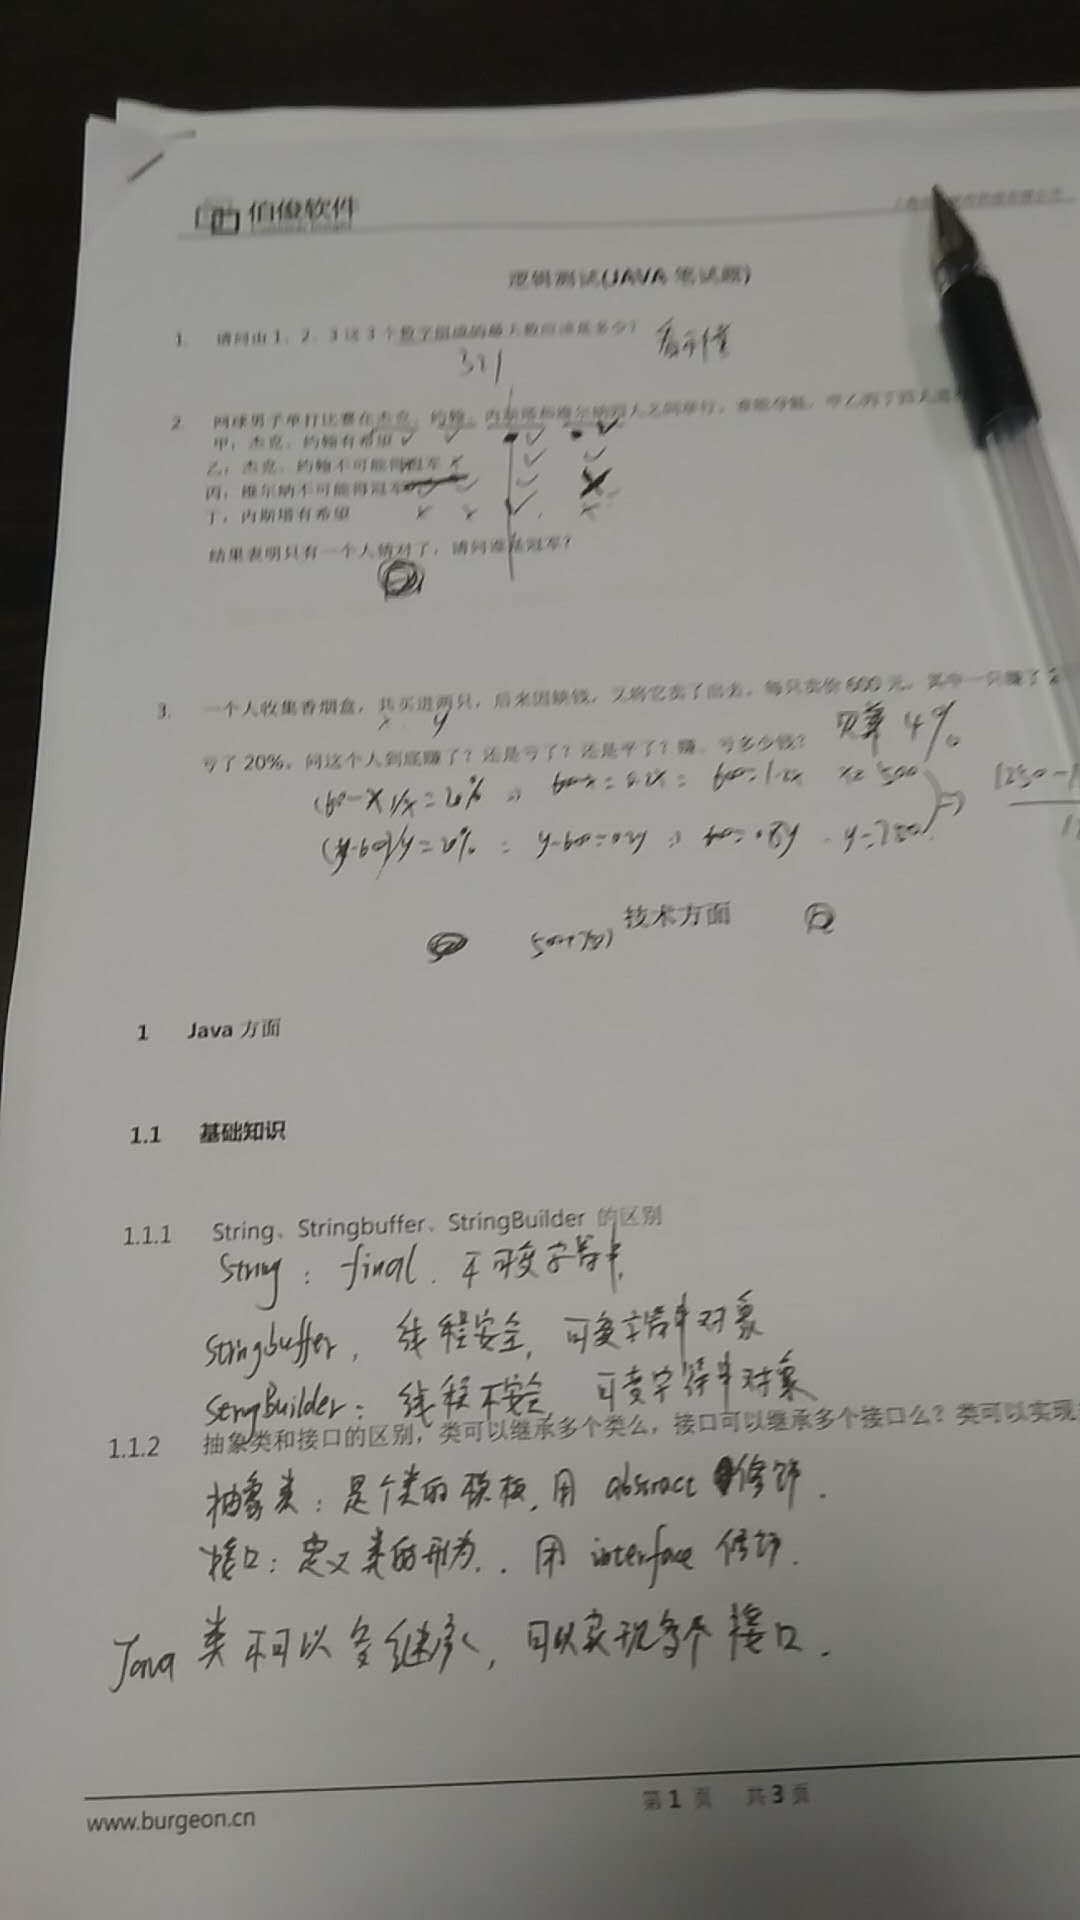 伯俊软件
逻辑测试(JAVA 笔试题)
1. 请问由 1、2、3 这 3 个数字组成的最大数应该是多少? 看不懂
321
2. 网球男子单打比赛在杰克、约翰、内斯塔和维尔纳四人之间举行,
甲:杰克、约翰有希望
乙:杰克、约翰不可能得冠军
丙:维尔纳不可能得冠军
丁:内斯塔有希望
结果表明只有一个人猜对了,请问谁是冠军?
3. 一个人收集香烟盒,共买进两只,后来因缺钱,又将它卖了出去,每只卖价 600 元,其中一只赚了
x y
亏了 20%。问这个人到底赚了?还是亏了?还是平了?赚、亏多少钱? 4%
(600-x)/x=20% ∴ 600-x=0.2x = 600=1.2x x=500
(y-600)/y=20% = y-600=0.2y ∴ 600=0.8y y=750
技术方面
1 Java 方面
1.1 基础知识
1.1.1 String、Stringbuffer、StringBuilder 的区别
String: final. 不可变字符串.
Stringbuffer, 线程安全, 可变字符串对象
StringBuilder: 线程不安全, 可变字符串对象
1.1.2 抽象类和接口的区别,类可以继承多个类么,接口可以继承多个接口么?类可以实现
抽象类:是个类的模板,用 abstract 修饰.
接口:定义类的形为. 用 interface 修饰.
Java 类不可以多继承,可以实现多个接口.
第 1 页 共 3 页
www.burgeon.cn